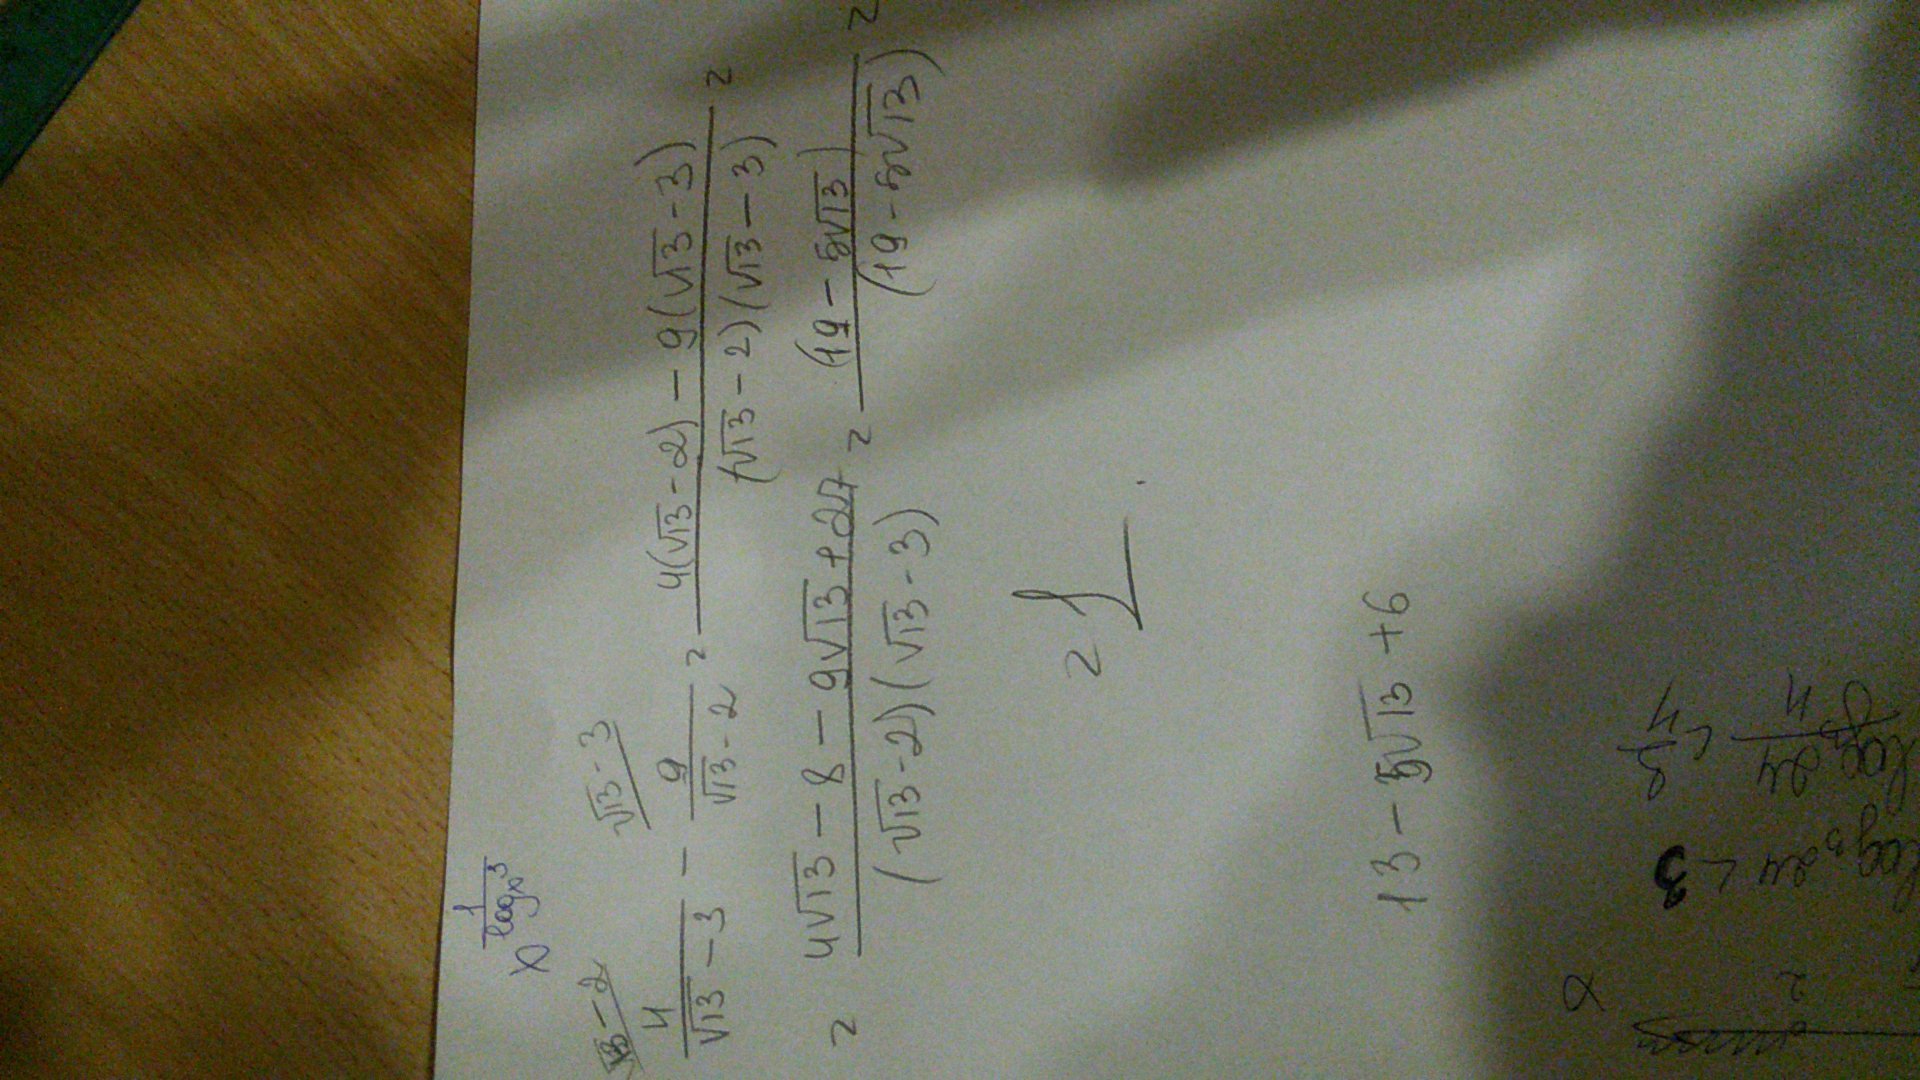 x^(1/log_x 3)
√13-2 √13-3
4/(√13-3) - 9/(√13-2) = (4(√13-2)-9(√13-3))/((√13-2)(√13-3)) =
= (4√13-8-9√13+27)/((√13-2)(√13-3)) = (19-5√13)/(19-5√13) =
= 1.
13-5√13+6
log₃24 < 3
24
x
2